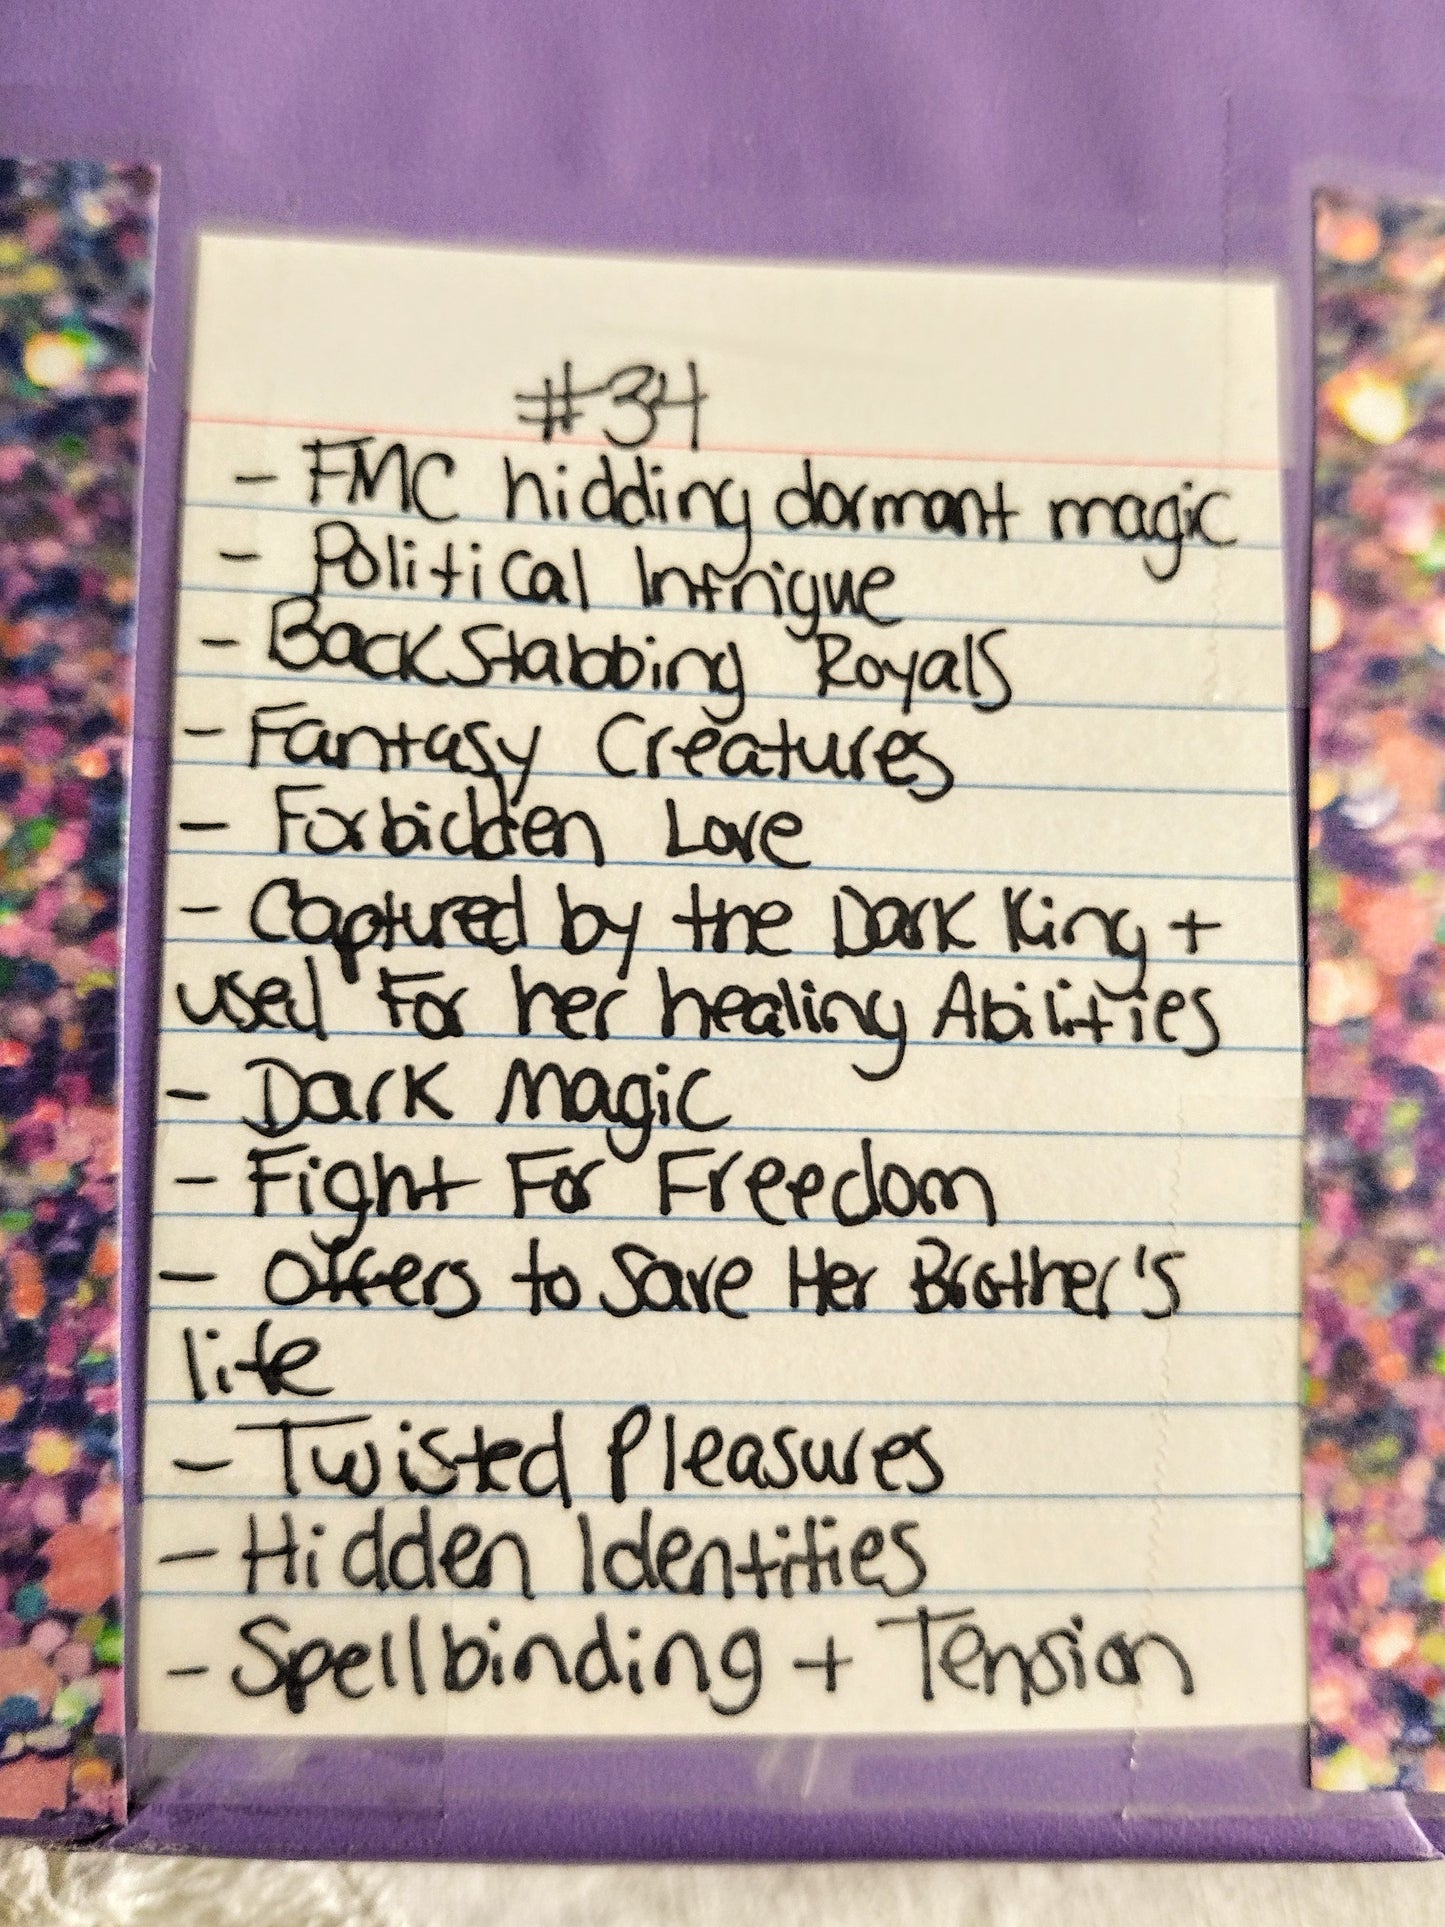 #34
- FMC hidding dormant magic
- Political Intrigue
- BackStabbing Royals
- Fantasy Creatures
- Forbidden Love
- Captured by the Dark King +
used For her healing Abilities
- Dark Magic
- Fight For Freedom
- Offers to Save Her Brother's
life
- Twisted Pleasures
- Hidden Identities
- Spellbinding + Tension